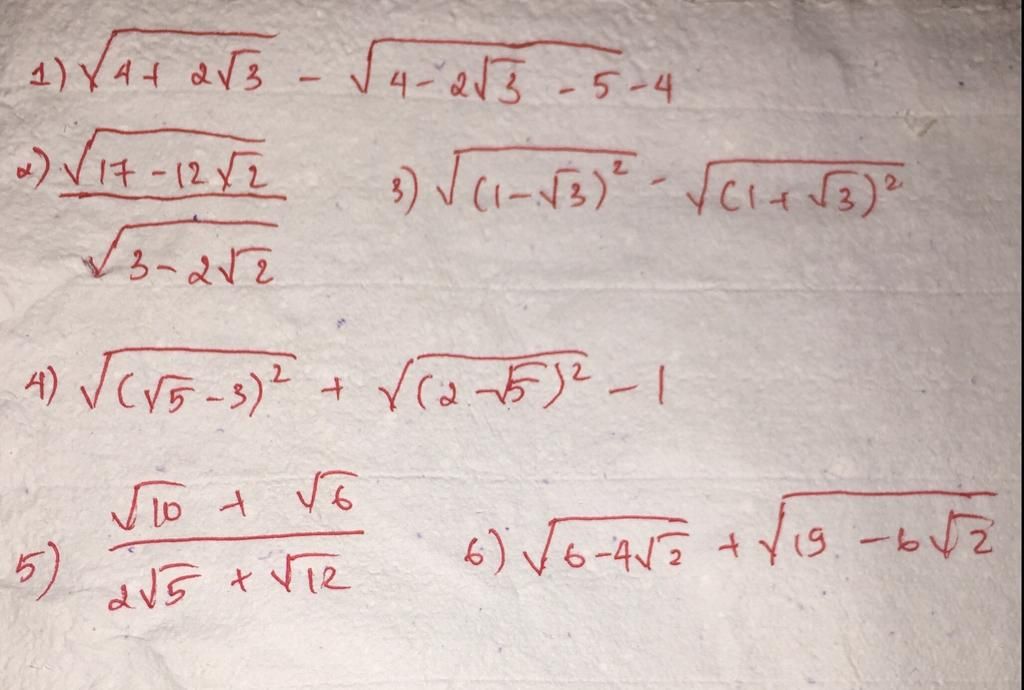 1) √(4 + 2√3) - √(4 - 2√3 - 5) - 4
2) √(17 - 12√2) / √(3 - 2√2)
3) √((1 - √3)²) - √((1 + √3)²)
4) √((√5 - 3)²) + √((2 - √5)²) - 1
5) (√10 + √6) / (2√5 + √12)
6) √(6 - 4√2) + √(19 - 6√2)